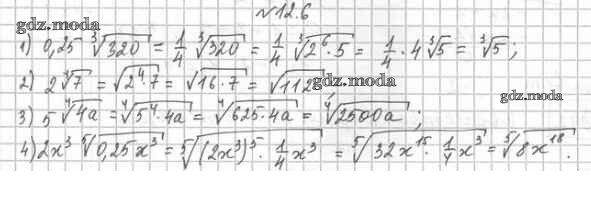 №12.6
gdz.moda
1) 0,25 ∛320 = 1/4 ∛320 = 1/4 ∛(2⁶·5) = 1/4 · 4∛5 = ∛5;
2) 2∜7 = ∜(2⁴·7) = ∜(16·7) = ∜112;
gdz.moda
gdz.moda
3) 5∜(4a) = ∜(5⁴·4a) = ∜(625·4a) = ∜(2500a);
4) 2x³ ⁵√(0,25x³) = ⁵√((2x³)⁵ · 1/4 x³) = ⁵√(32x¹⁵ · 1/4 x³) = ⁵√(8x¹⁸).